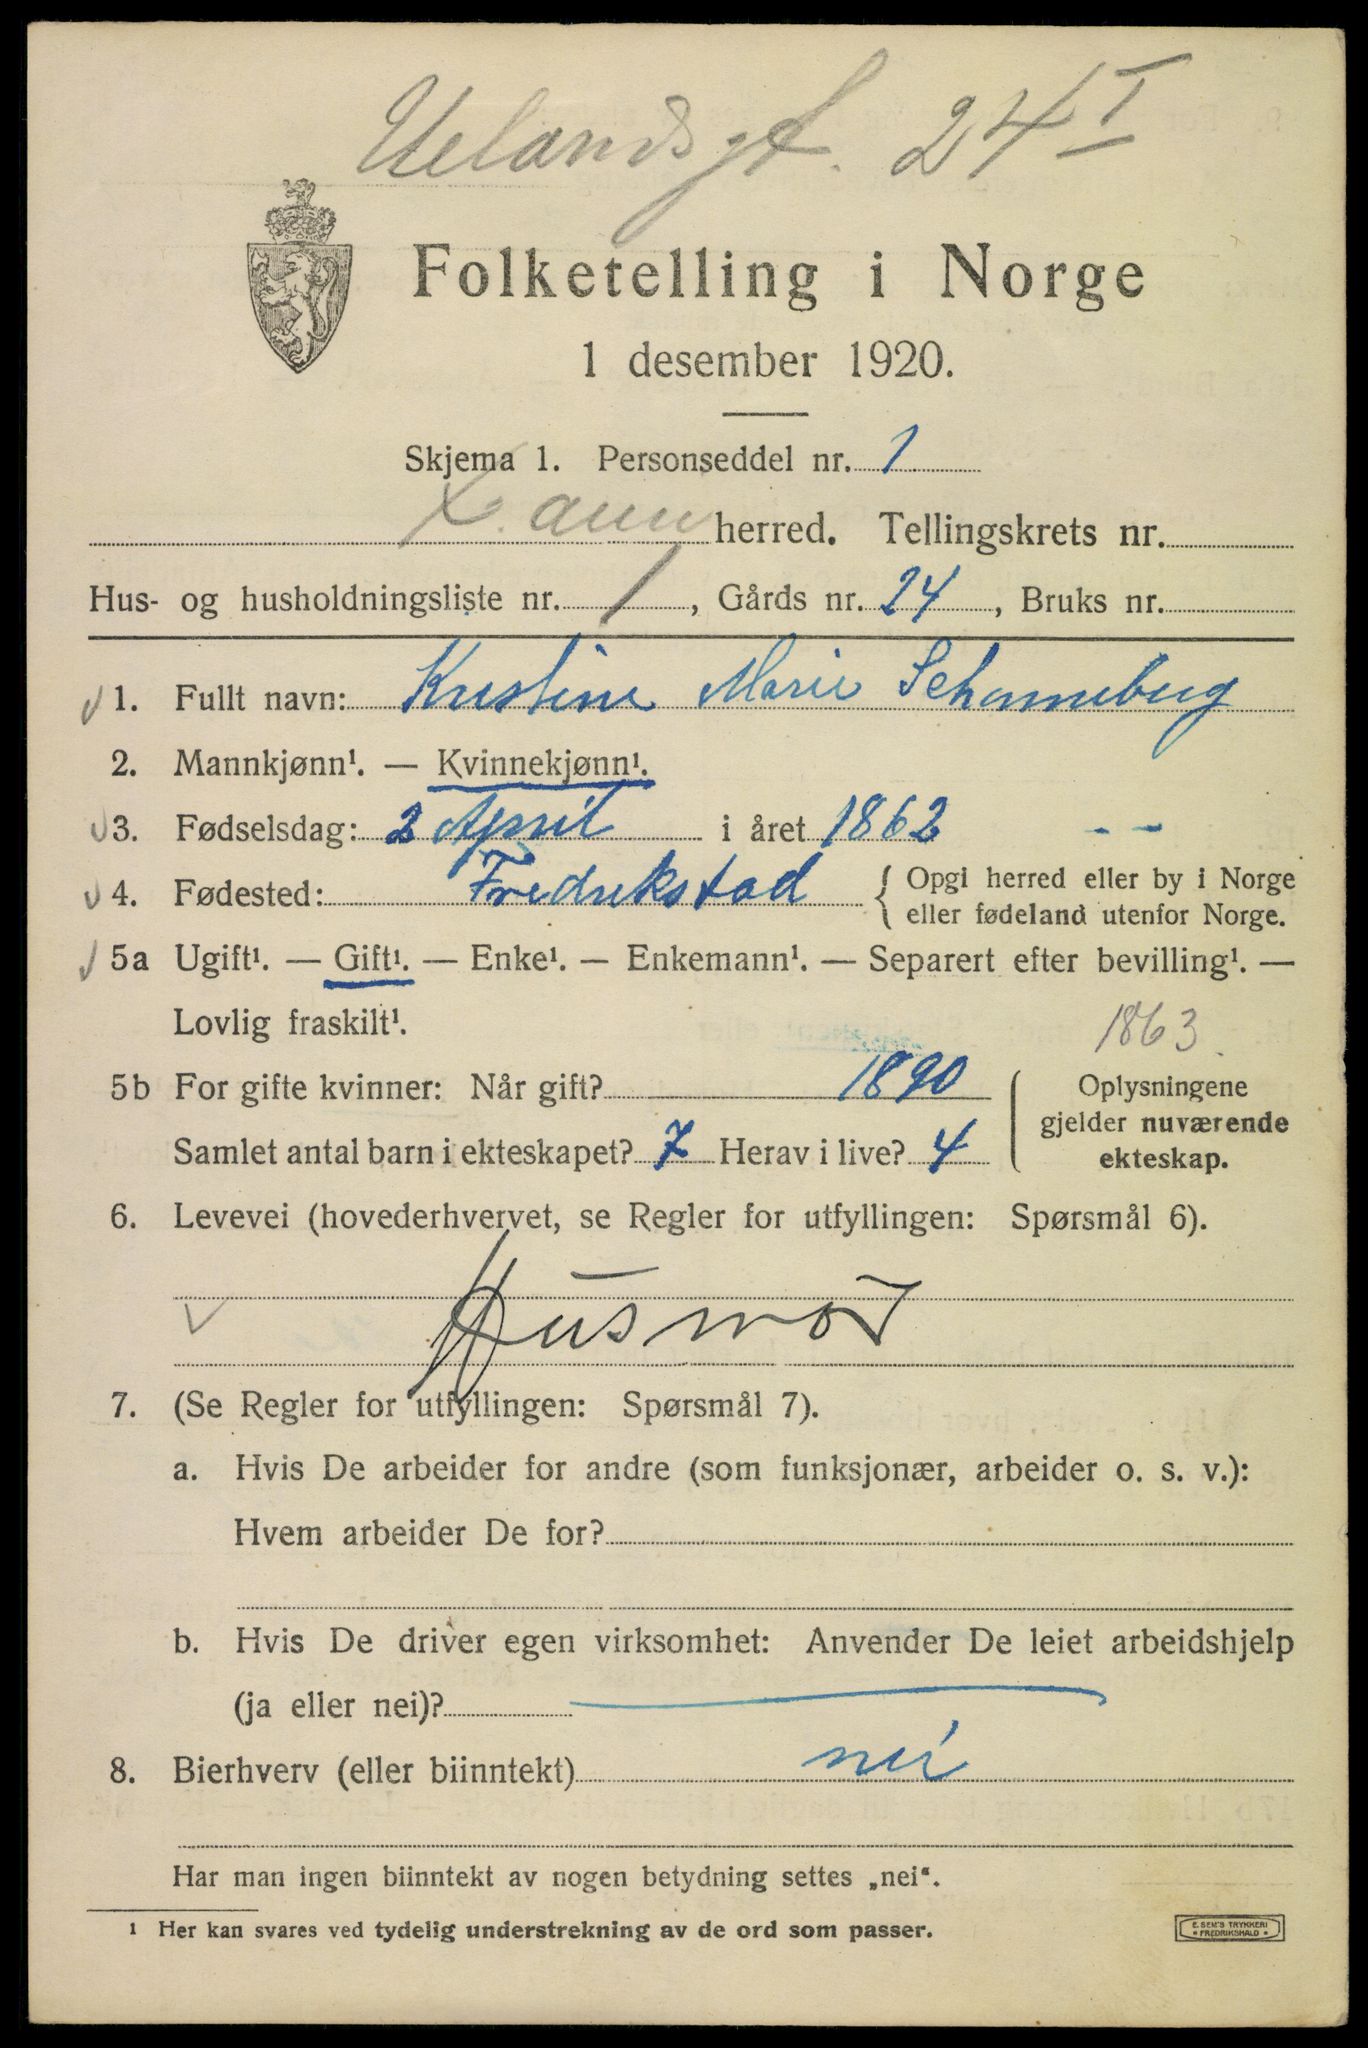 Uelandsgt. 24 I
Folketelling i Norge
1 desember 1920.
Skjema 1. Personseddel nr. 1
herred. Tellingskrets nr.
Hus- og husholdningsliste nr. 1, Gårds nr. 24, Bruks nr.
1. Fullt navn: Kristine Marie
2. Mannkjønn¹. — Kvinnekjønn¹.
3. Fødselsdag: 2 April i året 1862 - -
4. Fødested: Fredrikstad { Opgi herred eller by i Norge
eller fødeland utenfor Norge.
5a Ugift¹. — Gift¹. — Enke¹. — Enkemann¹. — Separert efter bevilling¹. —
Lovlig fraskilt¹. 1863
5b For gifte kvinner: Når gift? 1890 Oplysningene
gjelder nuværende
Samlet antal barn i ekteskapet? 7 Herav i live? 4 ekteskap.
6. Levevei (hovederhvervet, se Regler for utfyllingen: Spørsmål 6).
Husmor
7. (Se Regler for utfyllingen: Spørsmål 7).
a. Hvis De arbeider for andre (som funksjonær, arbeider o. s. v.):
Hvem arbeider De for?
b. Hvis De driver egen virksomhet: Anvender De leiet arbeidshjelp
(ja eller nei)?
8. Bierhverv (eller biinntekt) nei
Har man ingen biinntekt av nogen betydning settes „nei“.
¹ Her kan svares ved tydelig understrekning av de ord som passer.
E. SEM'S TRYKKERI
FREDRIKSHALD